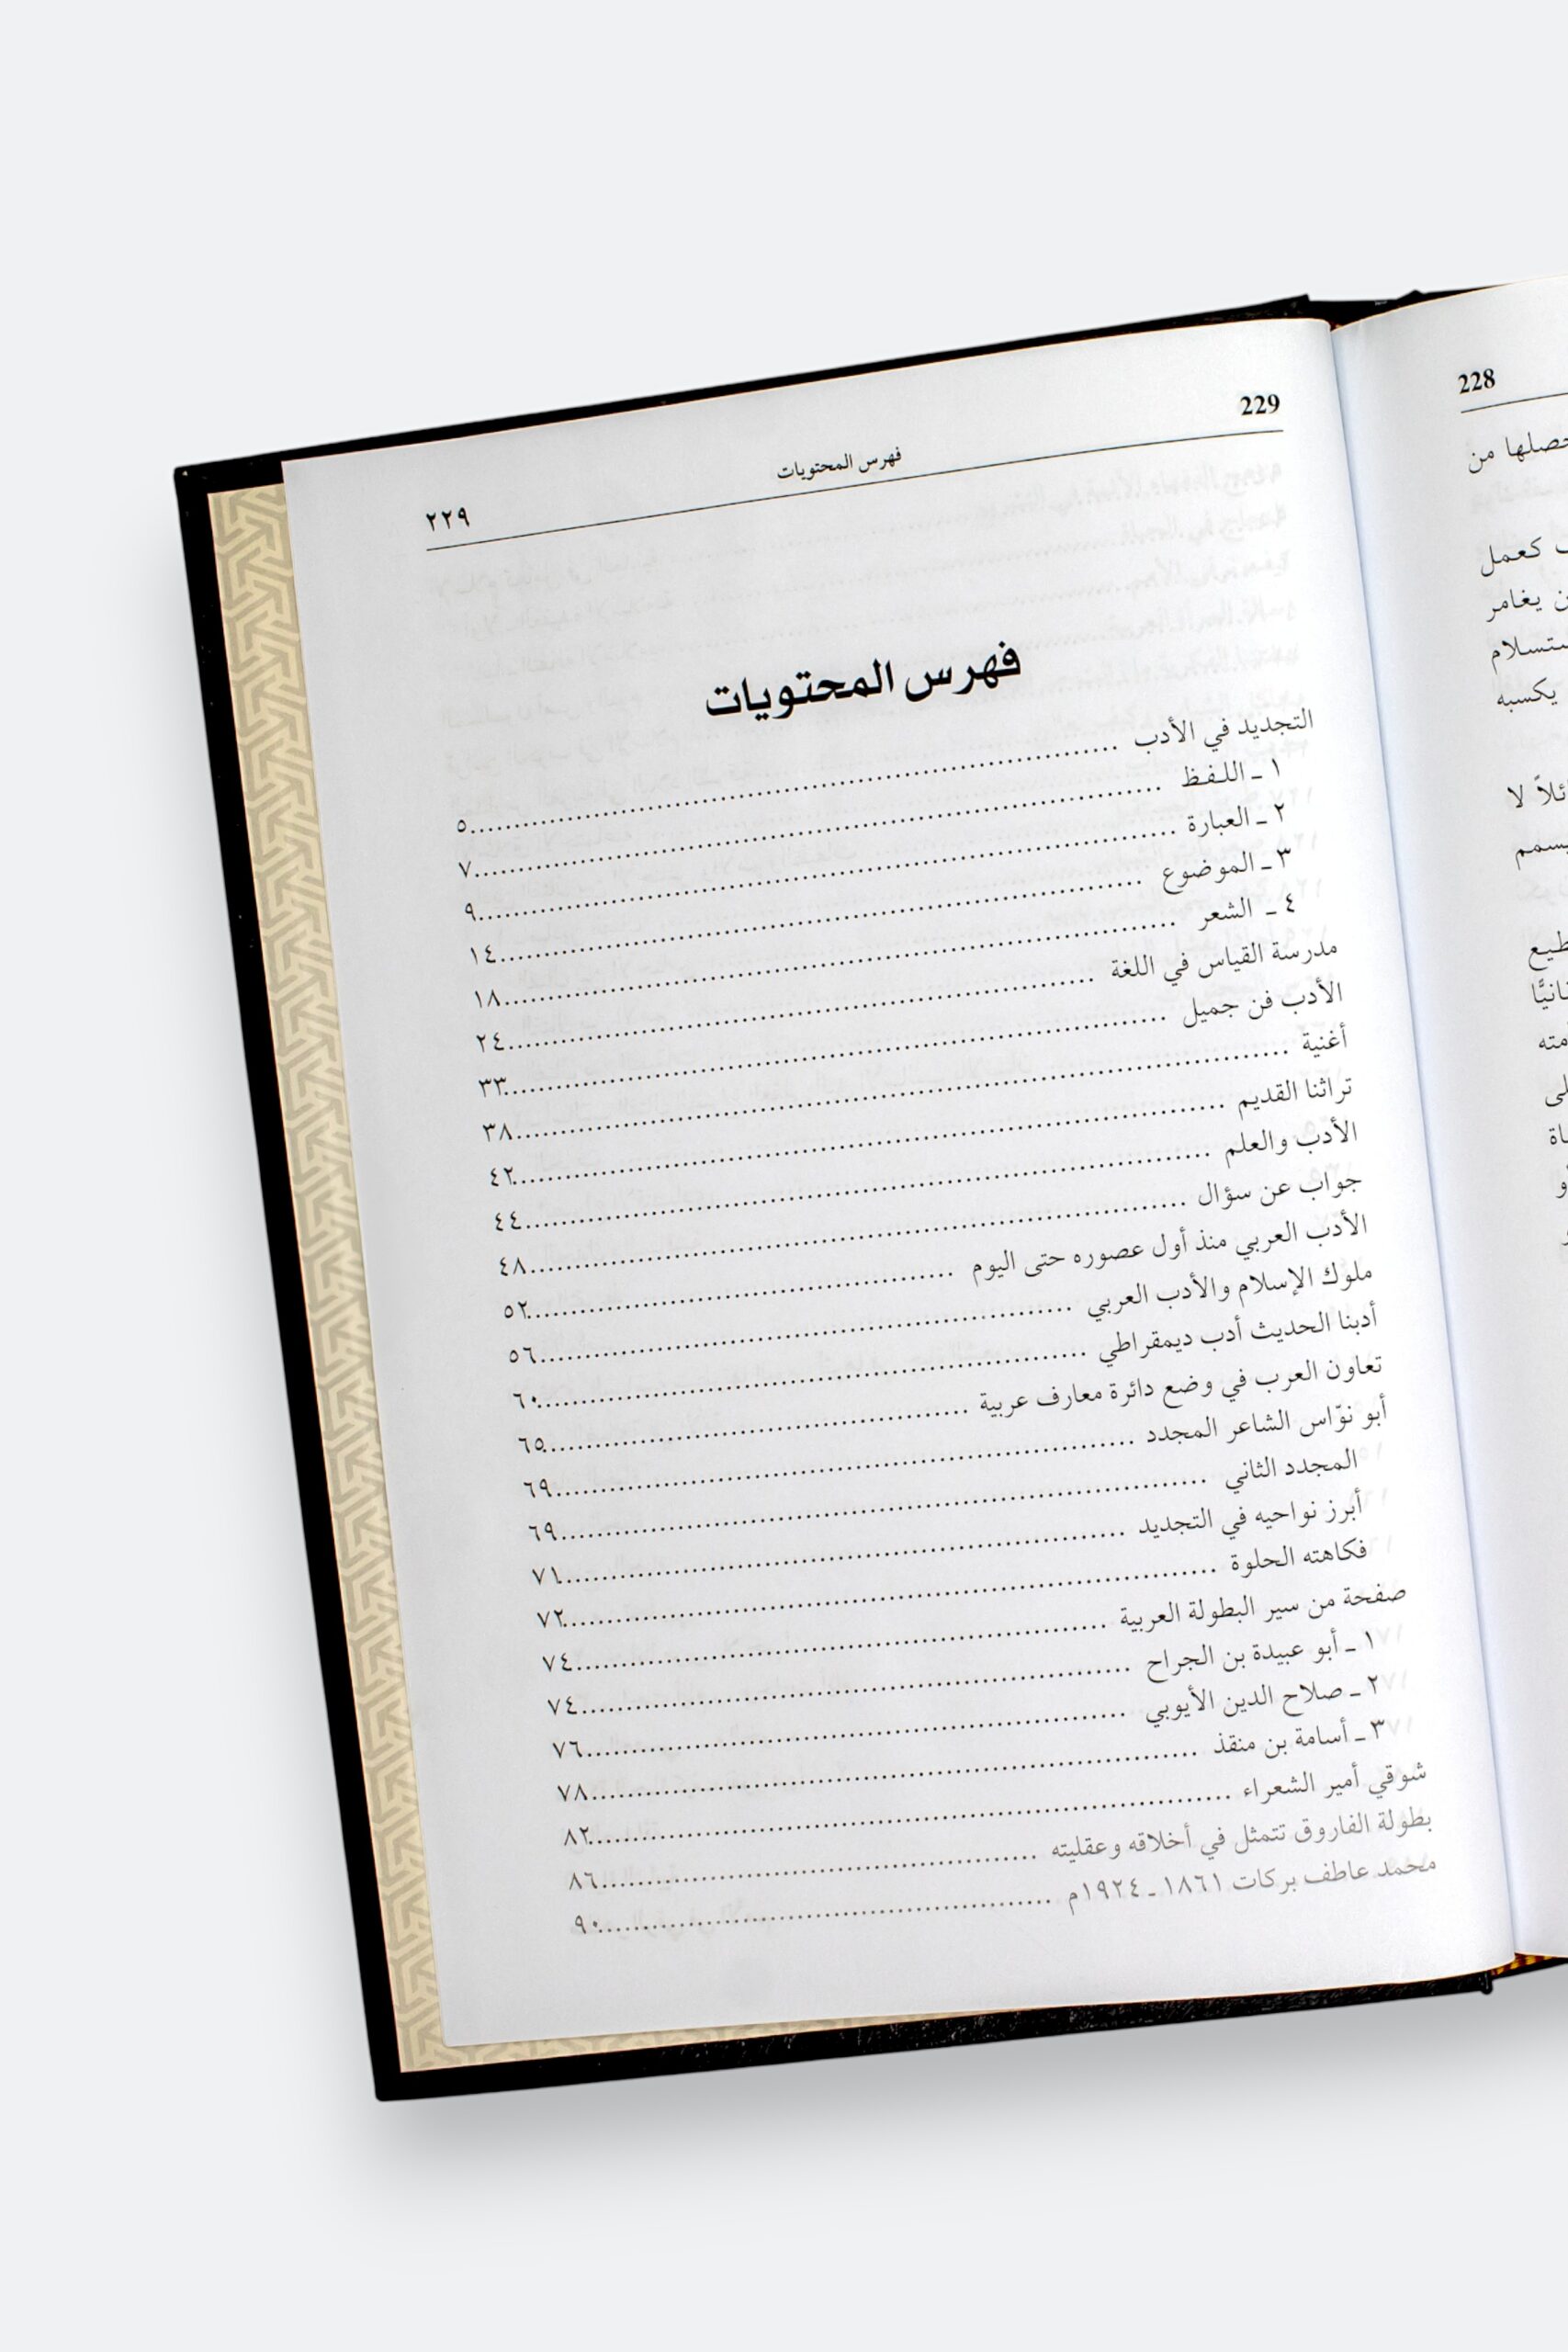 228
حصلها من
كعمل
يغامر
يكسبه
لا
229
فهرس المحتويات
٢٢٩
فهرس المحتويات
التجديد في الأدب ............ ٥
١ ـ اللفظ ............ ٧
٢ ـ العبارة ............ ٩
٣ ـ الموضوع ............ ١٤
٤ ـ الشعر ............ ١٨
مدرسة القياس في اللغة ............ ٢٤
الأدب فن جميل ............ ٣٣
أغنية ............ ٣٨
تراثنا القديم ............ ٤٢
الأدب والعلم ............ ٤٤
جواب عن سؤال ............ ٤٨
الأدب العربي منذ أول عصوره حتى اليوم ............ ٥٢
ملوك الإسلام والأدب العربي ............ ٥٦
أدبنا الحديث أدب ديمقراطي ............ ٦٠
تعاون العرب في وضع دائرة معارف عربية ............ ٦٥
أبو نوّاس الشاعر المجدد ............ ٦٩
المجدد الثاني ............ ٦٩
أبرز نواحيه في التجديد ............ ٧١
فكاهته الحلوة ............ ٧٢
صفحة من سير البطولة العربية ............ ٧٤
١ ـ أبو عبيدة بن الجراح ............ ٧٤
٢ ـ صلاح الدين الأيوبي ............ ٧٦
٣ ـ أسامة بن منقذ ............ ٧٨
شوقي أمير الشعراء ............ ٨٢
بطولة الفاروق تتمثل في أخلاقه وعقليته ............ ٨٦
محمد عاطف بركات ١٨٦١ ـ ١٩٢٤م ............ ٩٠